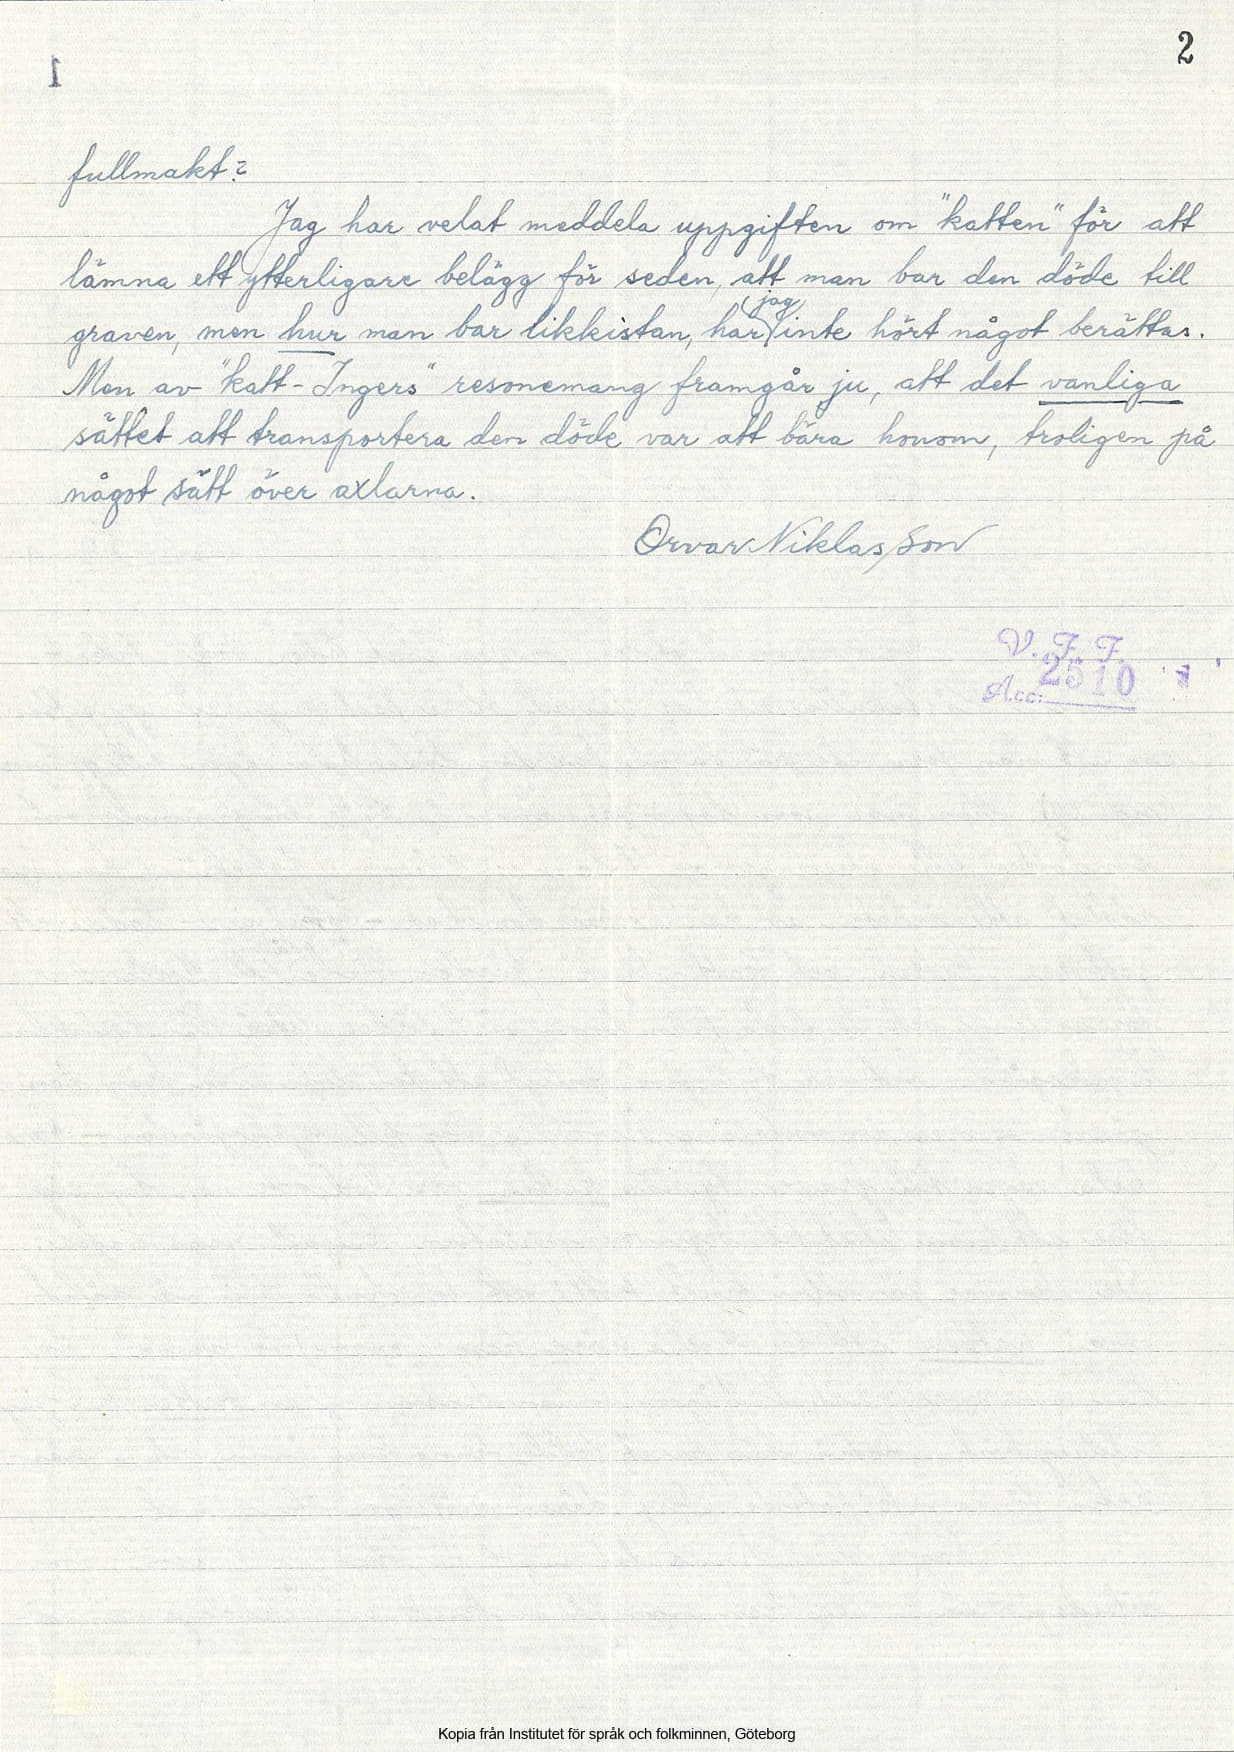 2
1
fullmakt?
Jag har velat meddela uppgiften om "katten" för att
lämna ett ytterligare belägg för seden, att man bar den döde till
graven, men hur man bar likkistan, har jag inte hört något berättas.
Men av "katt-Ingers" resonemang framgår ju, att det vanliga
sättet att transportera den döde var att bära honom, troligen på
något sätt över axlarna.
Orvar Niklasson
V. F. F.
Acc: 2510
Kopia från Institutet för språk och folkminnen, Göteborg